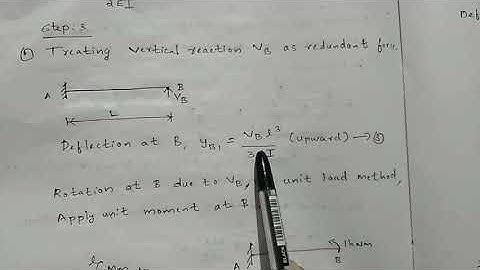 2EI
Step: 3
Treating vertical reaction VB as redundant force,
A B
VB
L
Deflection at B, yB1 = VB l³ / 3 I (upward) → ③
Rotation at B due to VB, unit load method,
Apply unit moment at B
1kNm
A B